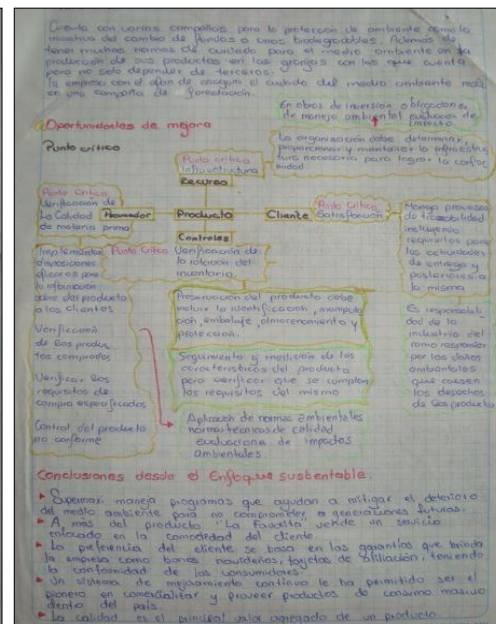 Cuenta con varias campañas para la protección de ambiente como la
iniciativa del cambio de fundas a unas biodegradables. Además de
tener muchas normas de cuidado para el medio ambiente en la
producción de sus productos en las granjas con las que cuenta
para no solo depender de terceros.
la empresa con el afán de conseguir el cuidado del medio ambiente
en una campaña de forestación.
En obras de inversión, obligaciones
de manejo ambiental evaluación de
impacto.
Oportunidades de mejora
Punto crítico
La organización debe determinar,
proporcionar y mantener la infraestruc
tura necesaria para lograr la confor
midad.
Punto crítico
Infraestructura
Recurso
Punto Crítico
Verificación de
La Calidad
de materia prima
Proveedor
Producto
Cliente
Punto Crítico
Satisfacción
Maneja procesos
de trazabilidad
incluyendo
requisitos para
las actividades
de entrega y
posteriores a
la misma
Controles
Punto Crítico Verificación de
la rotación del
inventario.
Implementar
disposiciones
eficaces para
la información
sobre del producto
a los clientes
Verificación
de los produc
tos comprados
Verificar los
requisitos de
compra especificados
Control del producto
no conforme
Preservación del producto debe
incluir la identificación, manipula
ción, embalaje, almacenamiento y
protección.
Seguimiento y medición de las
características del producto
para verificar que se cumplan
los requisitos del mismo
Aplicación de normas ambientales
normas técnicas de calidad
evaluaciones de impactos
ambientales.
Es responsabili
dad de la
industria
responder
por los daños
ambientales
que causen
los desechos
de los productos
Conclusiones desde el Enfoque sustentable.
▸ Supermaxi maneja programas que ayudan a mitigar el deterioro
del medio ambiente para no comprometer a generaciones futuras.
▸ A mas del producto "La Favorita" vende un servicio
enfocado en la comodidad del cliente
▸ La preferencia del cliente se basa en las garantías que brinda
la empresa como bonos navideños, tarjetas de afiliación, teniendo
la conformidad de los consumidores.
▸ Un sistema de mejoramiento continuo le ha permitido ser el
pionero en comercializar y proveer productos de consumo masivo
dentro del país.
▸ La calidad es el principal valor agregado de un producto